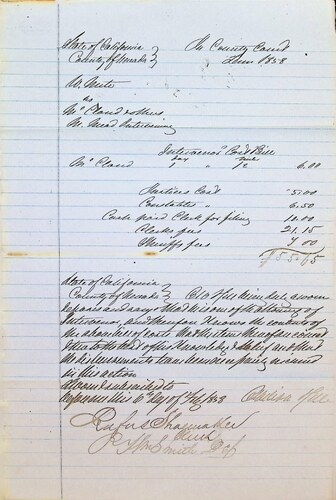 State of California } In County Court
County of Nevada } Term 1858
W. Mute
vs
McCloud & others
M. Mead Intervenor
Intervenors Cost Bill
day mile
McCloud 1 " 12 6.00
Justices Cost 5.00
Constables " 6.50
Cash paid Clerk for filing 10.00
Clerks fees 21.15
Sheriffs fees 7.00
$55.65
State of California
County of Nevada } being duly sworn
deposes and says that he is one of the attorneys of
Intervenor and therefore knows the contents
of the above bill of costs that the items therein
to the best of his knowledge and belief and that
the disbursements have been necessarily incurred
in this action
Sworn & subscribed to
before me this day of 1858
Rufus Shoemaker
Clerk
P. Smith Dep